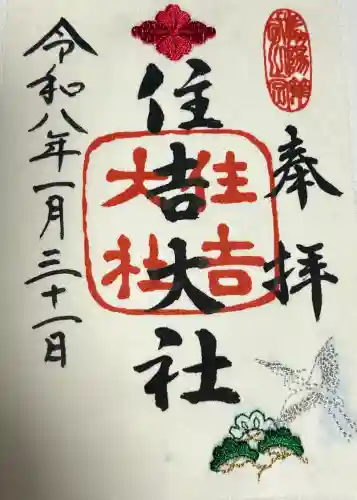 奉拝
住吉大社
住吉
大社
令和八年一月三十一日